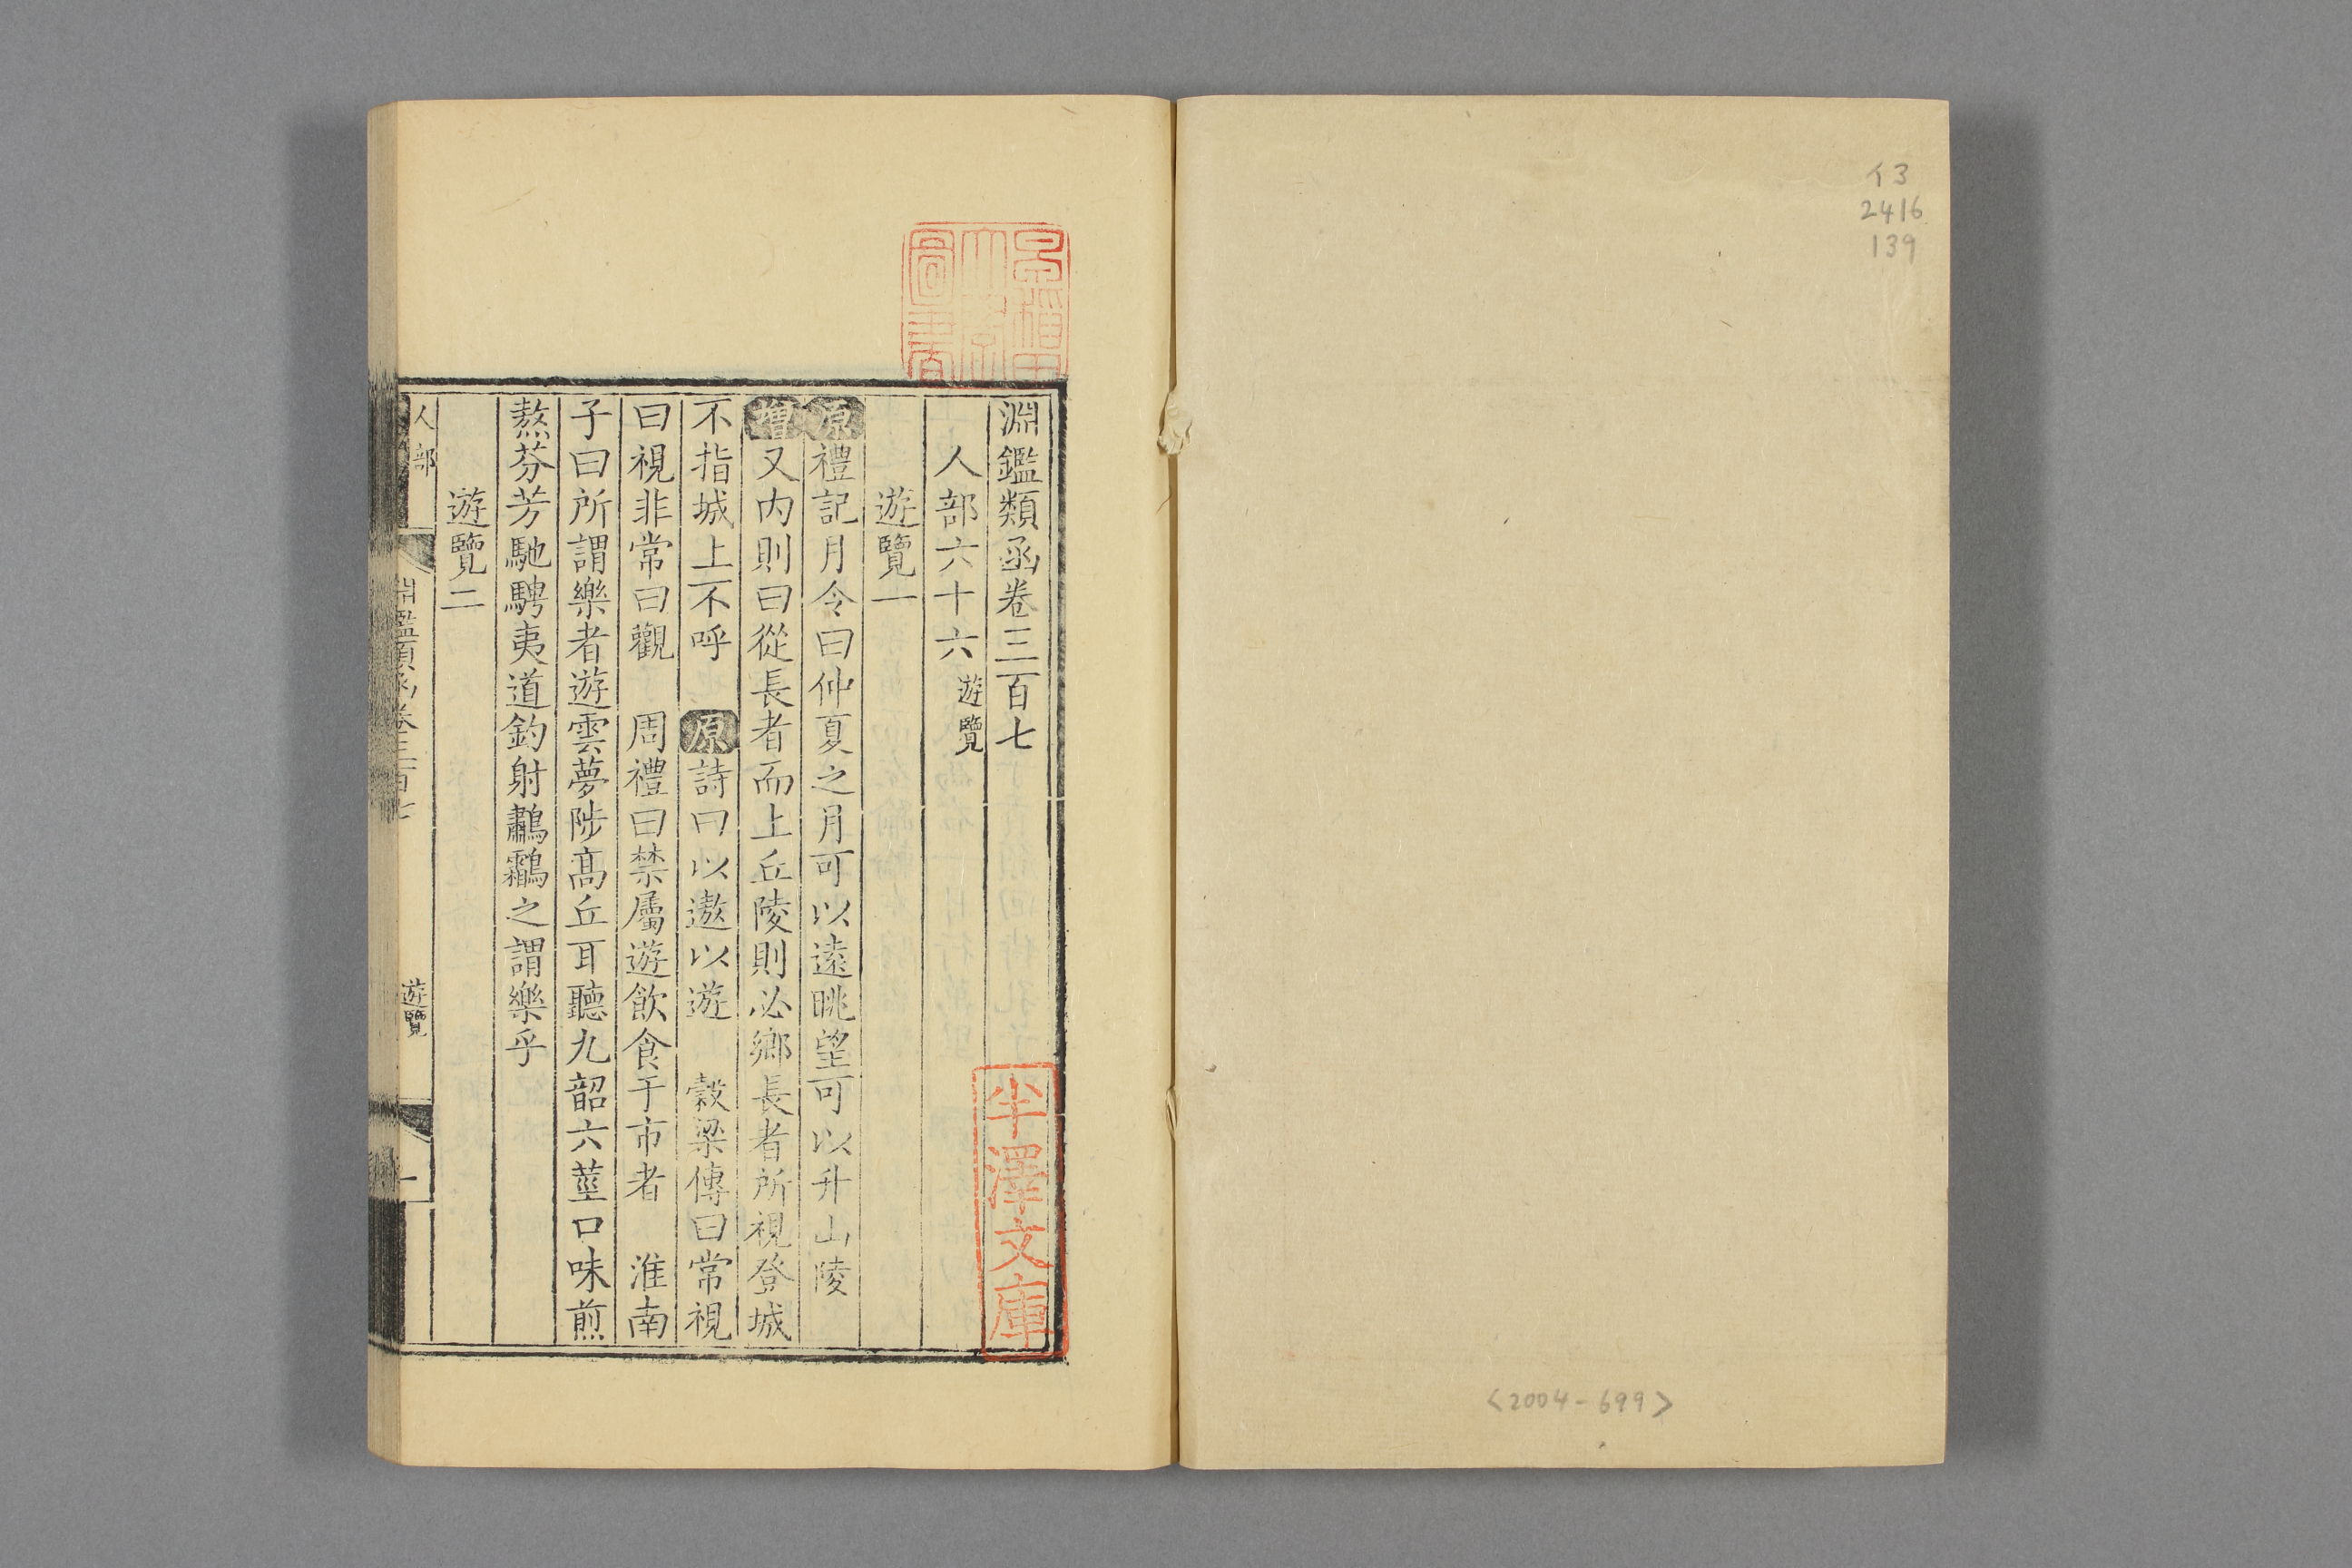 イ3
2416
139
<2004-699>
早稲田
大學
圖書
淵鑑類函卷三百七
人部六十六遊覽
遊覽一
原禮記月令曰仲夏之月可以遠眺望可以升山陵
增又内則曰從長者而上丘陵則必鄉長者所視登城
不指城上不呼 原詩曰以遨以遊 穀梁傳曰常視
曰視非常曰觀 周禮曰禁屬遊飲食于市者 淮南
子曰所謂樂者遊雲夢陟髙丘耳聽九韶六莖口味煎
熬芬芳馳騁夷道釣射鷫鸘之謂樂乎
遊覽二
人部
淵鑑類函卷三百七
遊覽
一
半澤文庫